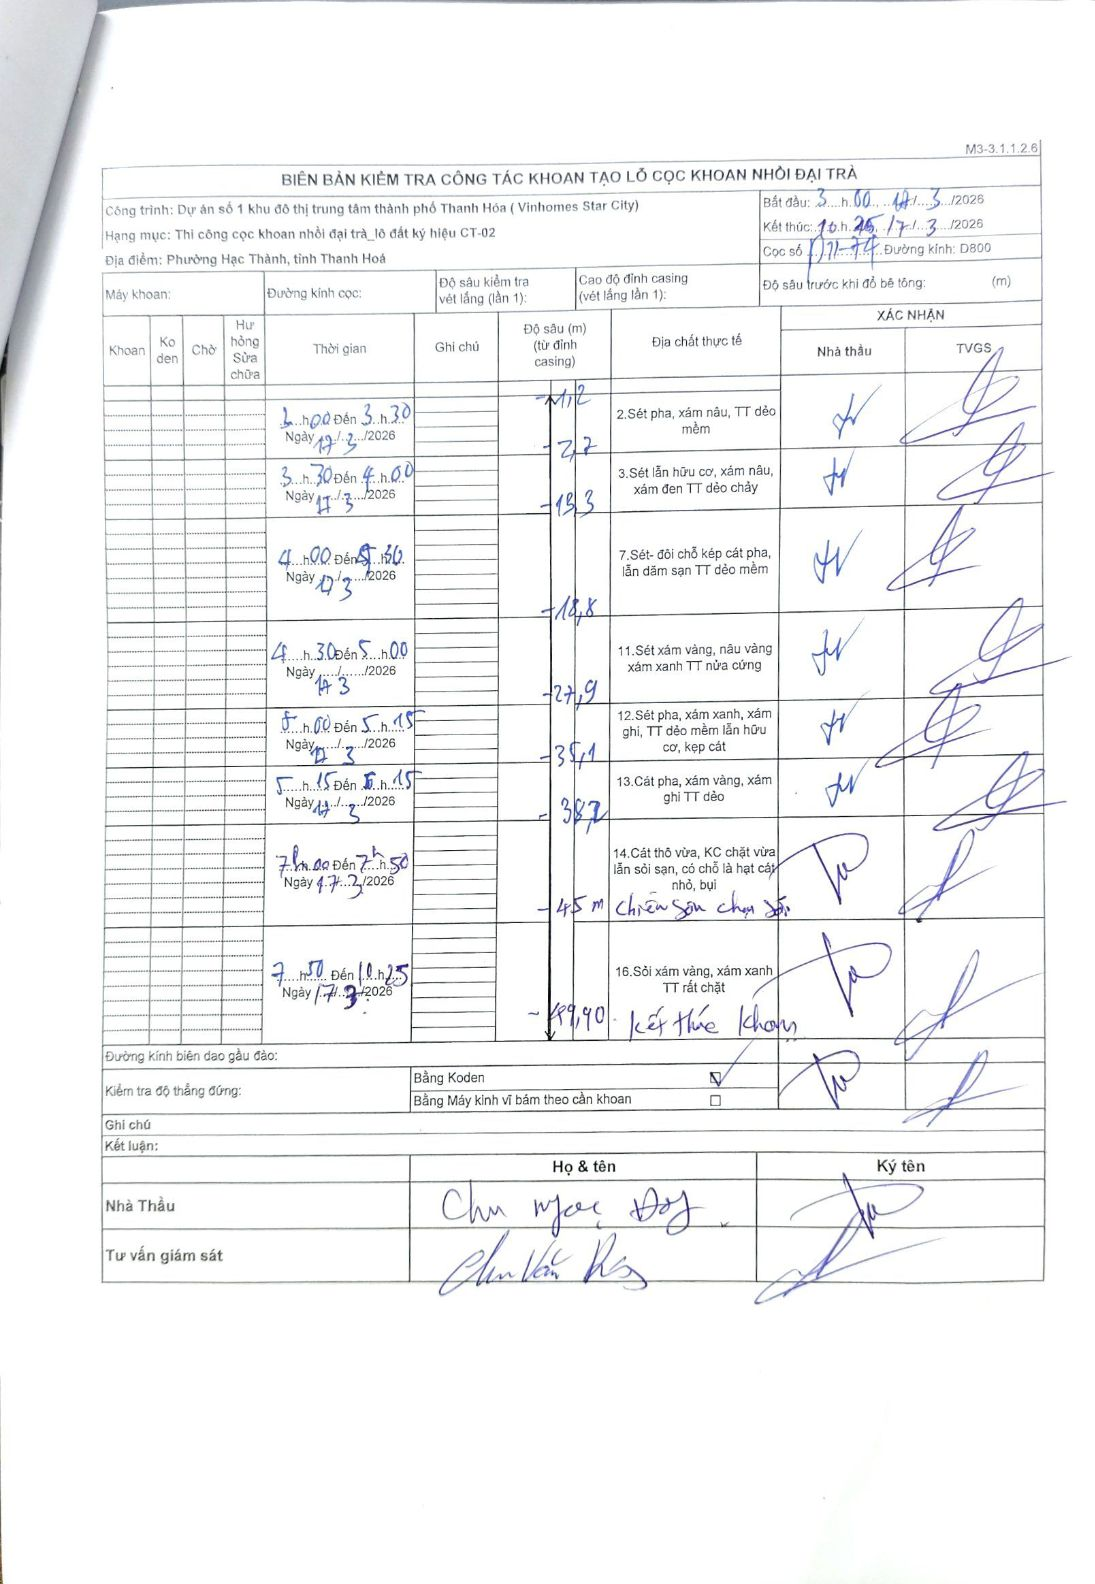 M3-3.1.1.2.6
BIÊN BẢN KIỂM TRA CÔNG TÁC KHOAN TẠO LỖ CỌC KHOAN NHỒI ĐẠI TRÀ
Công trình: Dự án số 1 khu đô thị trung tâm thành phố Thanh Hóa ( Vinhomes Star City)
Hạng mục: Thi công cọc khoan nhồi đại trà_lô đất ký hiệu CT-02
Địa điểm: Phường Hạc Thành, tỉnh Thanh Hoá
Bắt đầu: 3 h 00, 17/ 3 /2026
Kết thúc: 10 h 25, 17/ 3 /2026
Cọc số Đường kính: D800
Máy khoan: Đường kính cọc: Độ sâu kiểm tra vét lắng (lần 1): Cao độ đỉnh casing (vét lắng lần 1): Độ sâu trước khi đổ bê tông: (m)
Khoan Ko den Chờ Hư hỏng Sửa chữa Thời gian Ghi chú Độ sâu (m) (từ đỉnh casing) Địa chất thực tế XÁC NHẬN
Nhà thầu TVGS
-1,2
h 00 Đến 3 h 30
Ngày 17/ 3 /2026
2.Sét pha, xám nâu, TT dẻo mềm
-2,7
3 h 30 Đến 4 h 00
Ngày 17/ 3 /2026
3.Sét lẫn hữu cơ, xám nâu, xám đen TT dẻo chảy
-13,3
4 h 00 Đến h 30
Ngày 17/ 3 /2026
7.Sét- đôi chỗ kép cát pha, lẫn dăm sạn TT dẻo mềm
-18,8
4 h 30 Đến 5 h 00
Ngày 17/ 3 /2026
11.Sét xám vàng, nâu vàng xám xanh TT nửa cứng
-27,9
5 h 00 Đến 5 h 15
Ngày 17/ 3 /2026
12.Sét pha, xám xanh, xám ghi, TT dẻo mềm lẫn hữu cơ, kẹp cát
-35,1
5 h 15 Đến 6 h 15
Ngày 17/ 3 /2026
13.Cát pha, xám vàng, xám ghi TT dẻo
- 38,2
7h 00 Đến 7h 50
Ngày 17/ 3 /2026
14.Cát thô vừa, KC chặt vừa lẫn sỏi sạn, có chỗ là hạt cát nhỏ, bụi
-45 m
7 h 50 Đến 10 h 25
Ngày 17/ 3 /2026
16.Sỏi xám vàng, xám xanh TT rất chặt
-49,90
kết thúc khoan
Đường kính biên dao gầu đào:
Kiểm tra độ thẳng đứng:
Bằng Koden ☑
Bằng Máy kinh vĩ bám theo cần khoan ☐
Ghi chú
Kết luận:
Họ & tên Ký tên
Nhà Thầu Chu Ngọc
Tư vấn giám sát Chu Văn